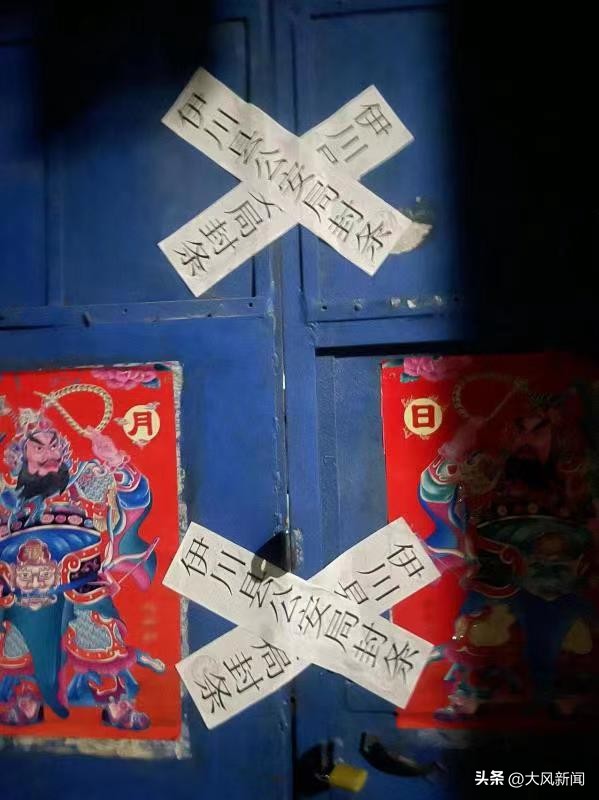 伊川县公安局封条
伊川
局封条
月
日
伊川县公安局封条
伊川
局封条
头条 @大风新闻